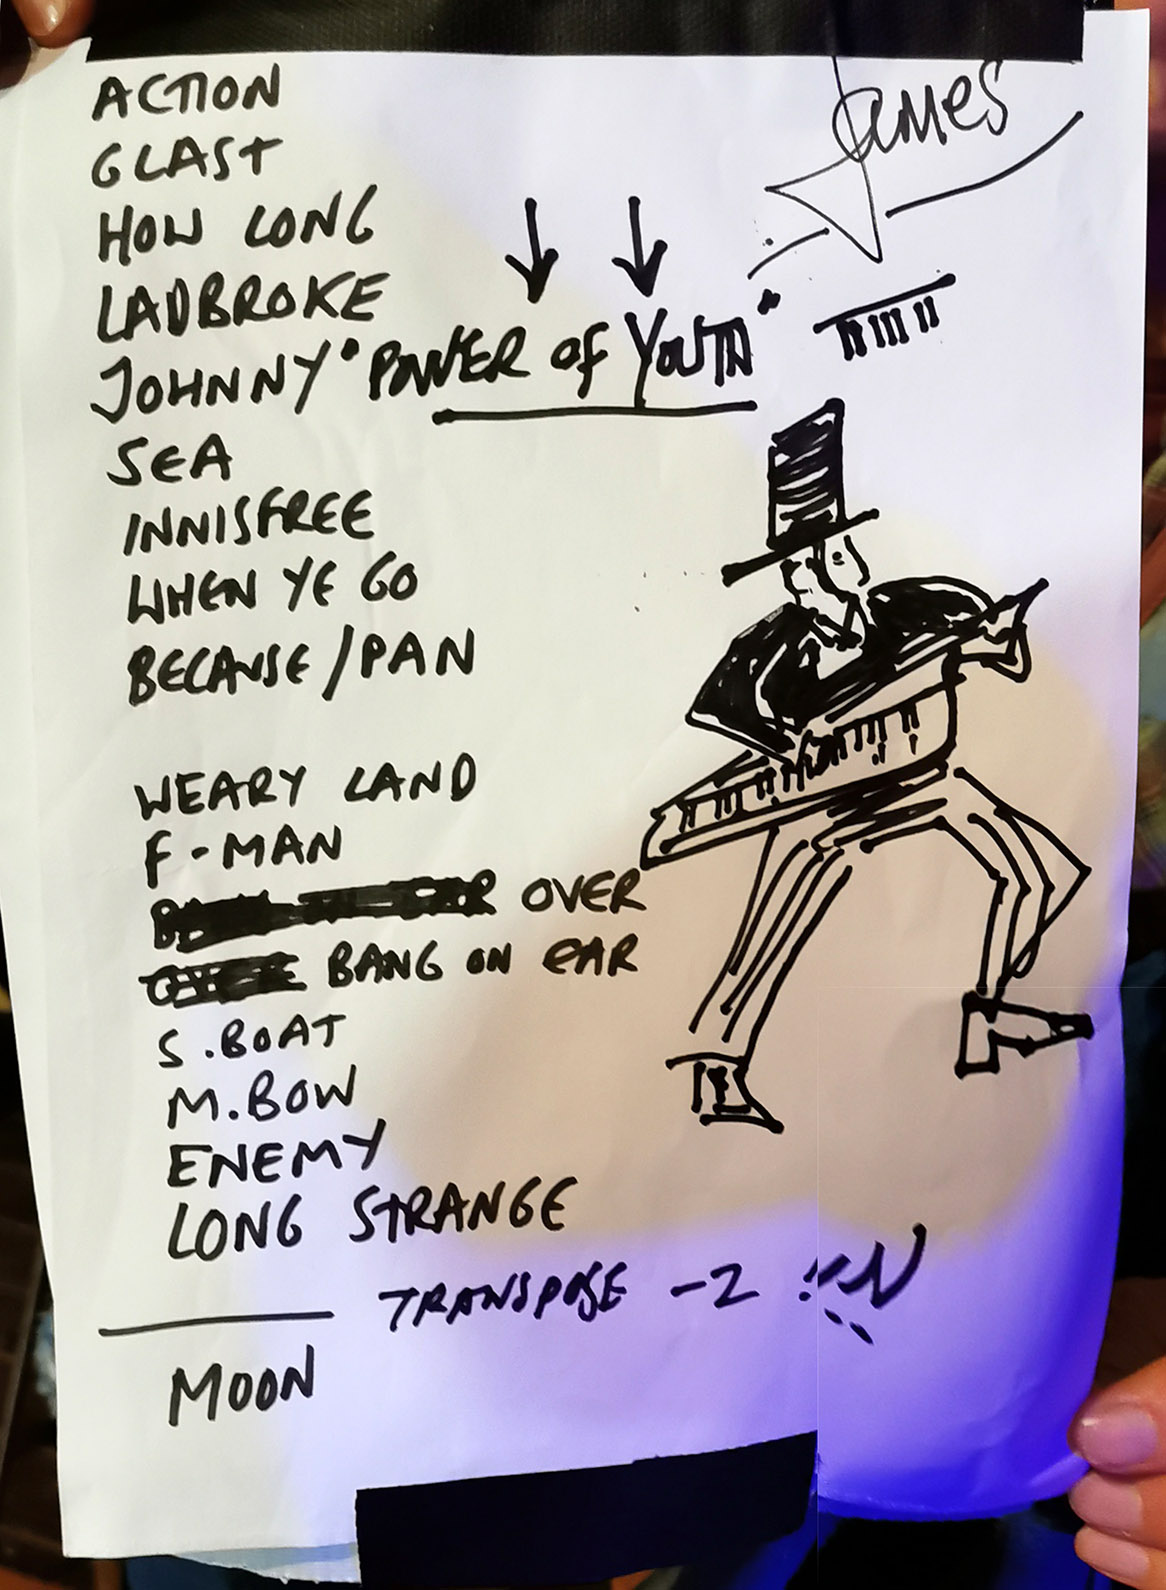 James
ACTION
GLAST
HOW LONG
LADBROKE
JOHNNY "POWER of YOUTH"
SEA
INNISFREE
WHEN YE GO
BECAUSE/PAN
WEARY LAND
F-MAN
OVER
BANG ON EAR
S.BOAT
M.BOW
ENEMY
LONG STRANGE
TRANSPOSE -2
MOON